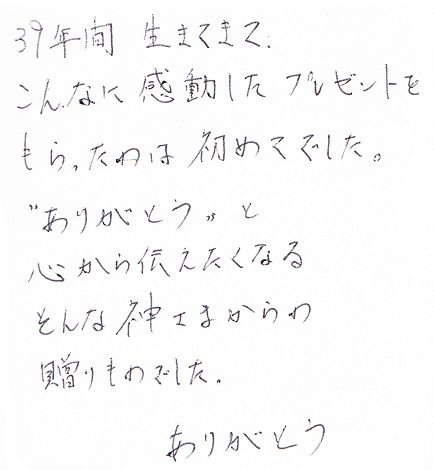 39年間 生きてきて、
こんなに 感動した プレゼントを
もらったのは 初めてでした。
“ありがとう„ と
心から伝えたくなる
そんな 神さまからの
贈りものでした。
ありがとう